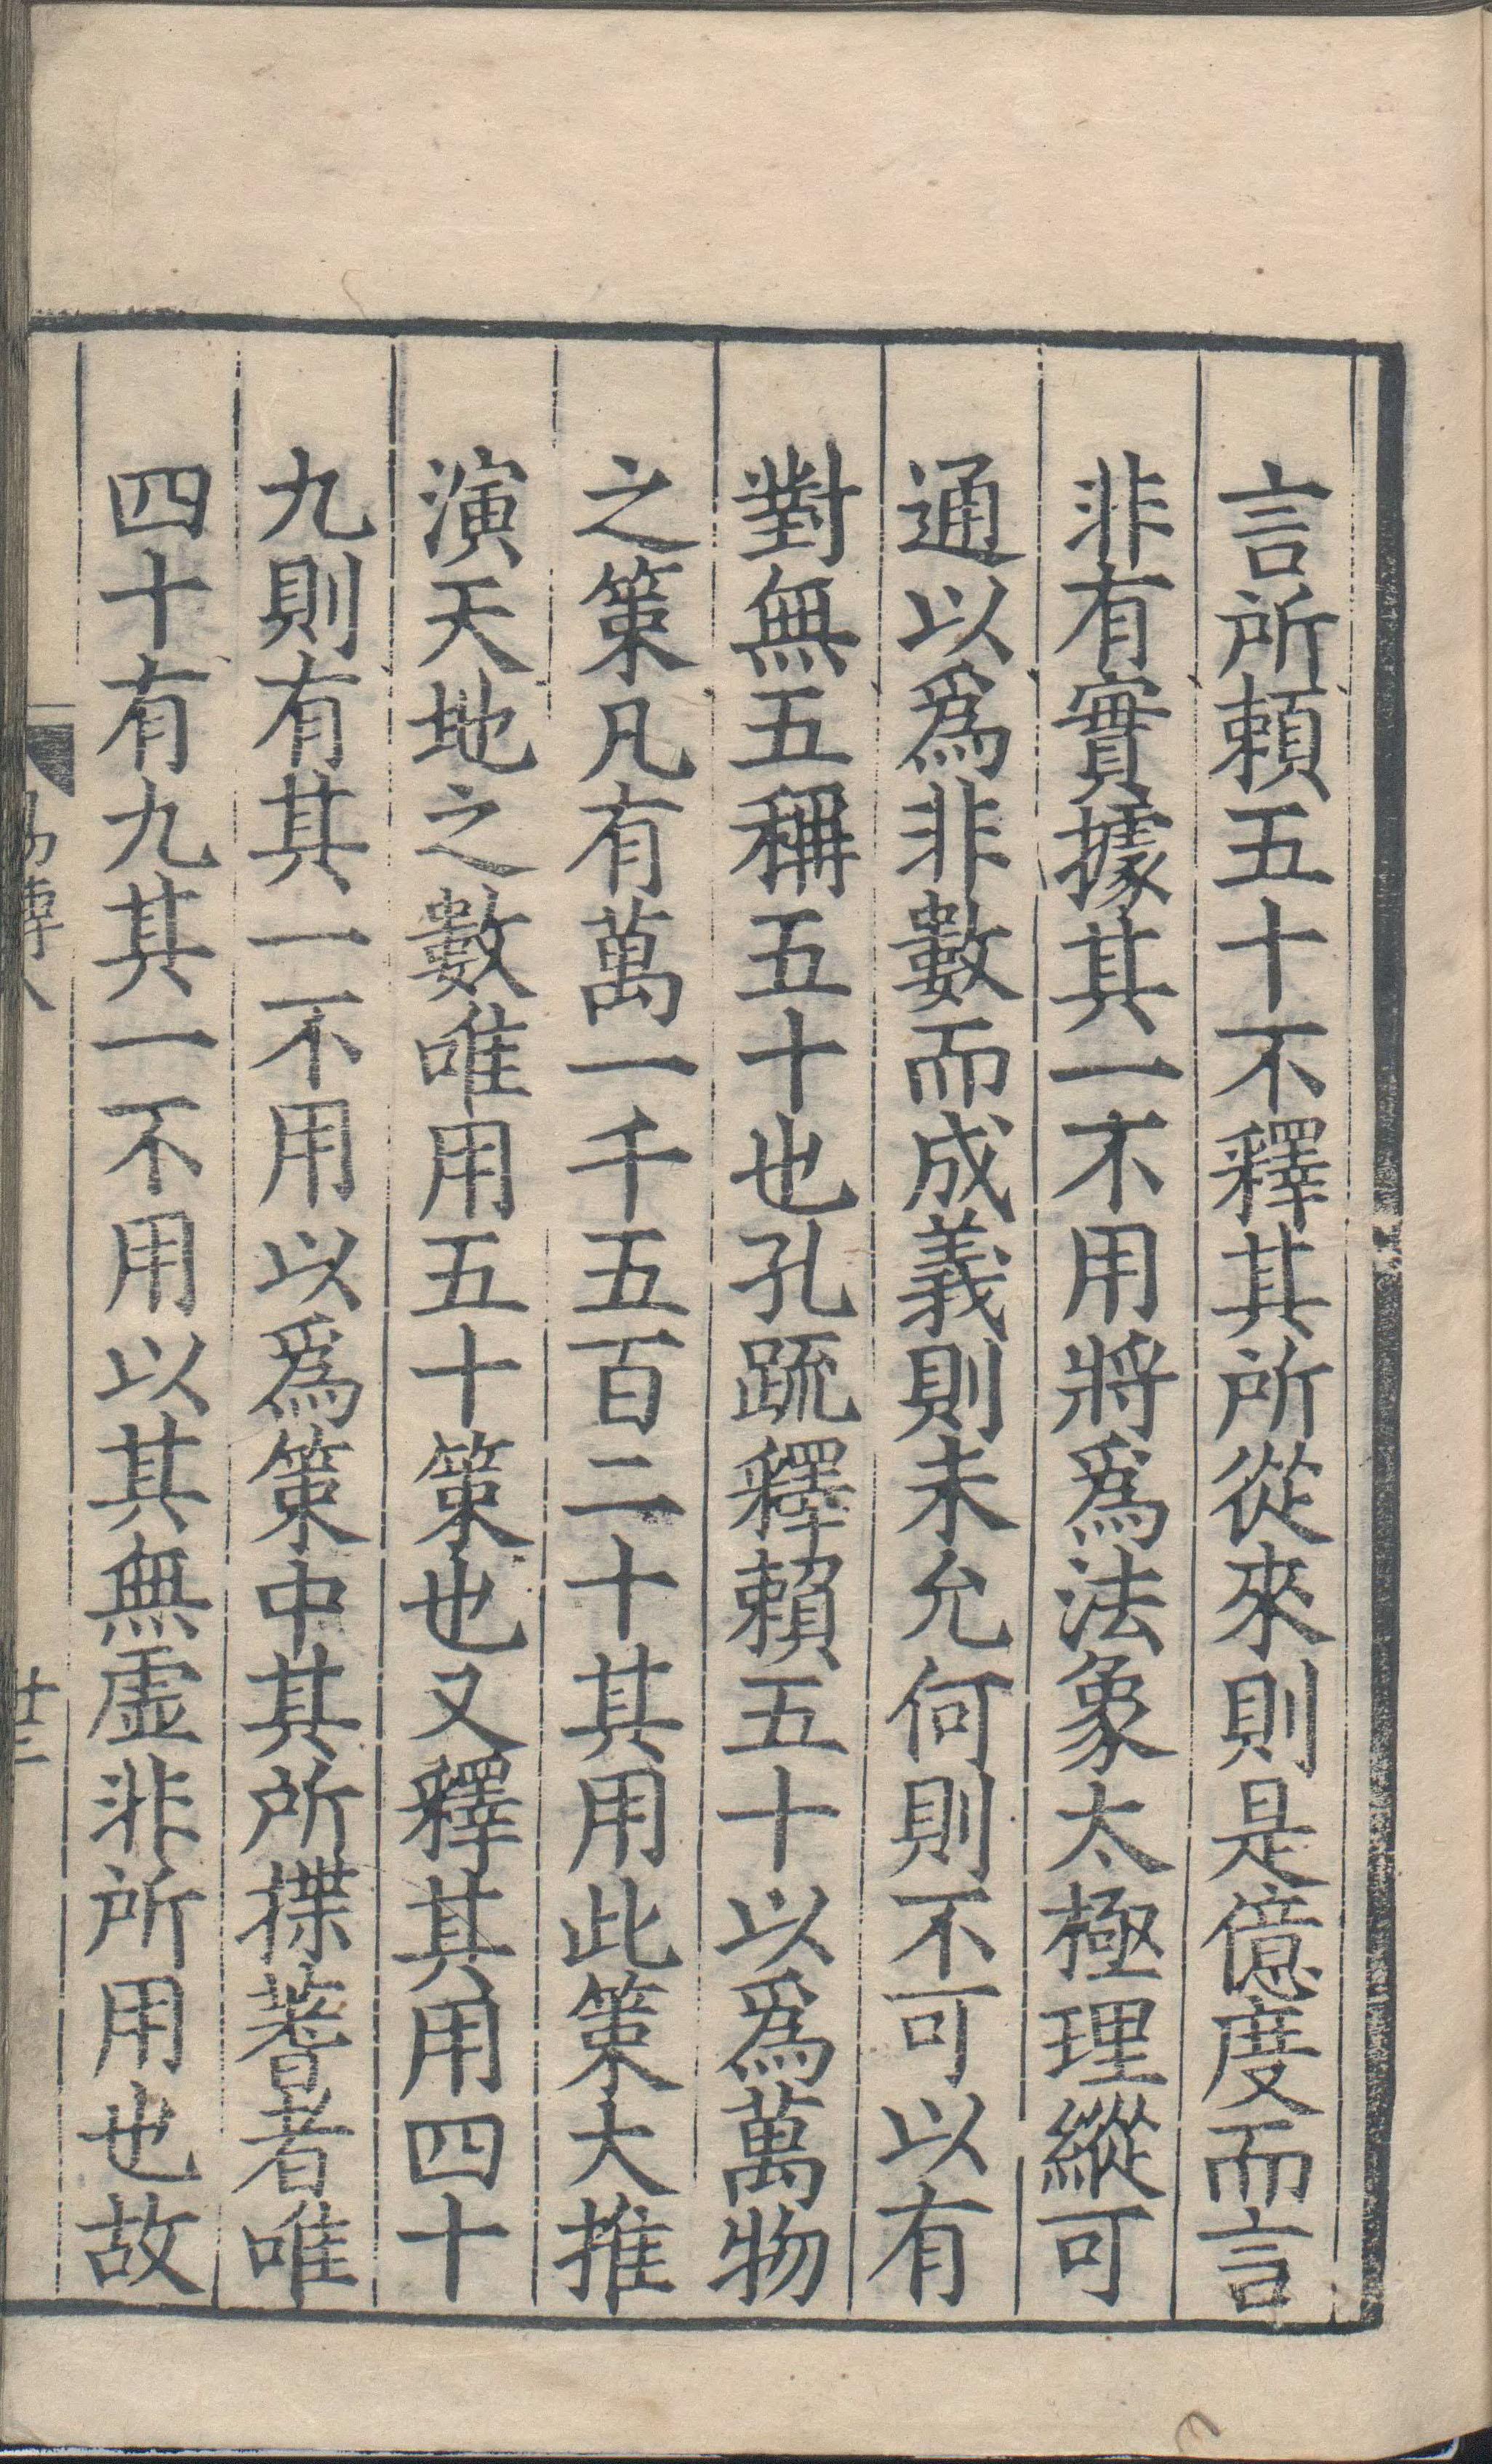 言所頼五十不釋其所從來則是億度而言
非有實據其一不用將爲法象太極理縱可
通以爲非數而成義則未允何則不可以有
對無五稱五十也孔疏釋賴五十以爲萬物
之策凡有萬一千五百二十其用此策大推
演天地之數唯用五十策也又釋其用四十
九則有其一不用以爲策中其所揲蓍者唯
四十有九其一不用以其無虛非所用也故
易傳八
廿三